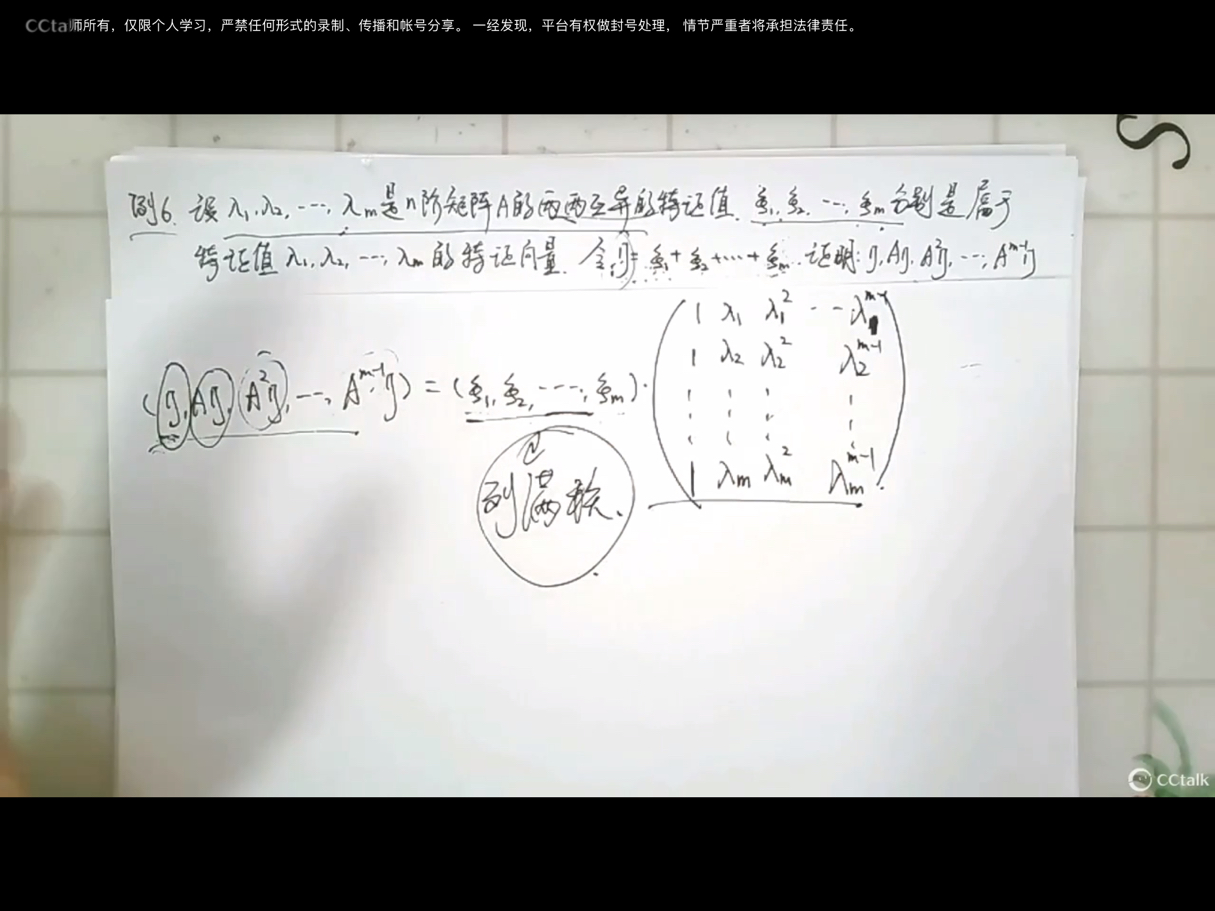 CCta师所有，仅限个人学习，严禁任何形式的录制、传播和帐号分享。 一经发现，平台有权做封号处理， 情节严重者将承担法律责任。
S
例6. 设 λ₁, λ₂, ⋯, λₘ是n阶矩阵A的两两互异的特征值. ξ₁, ξ₂, ⋯, ξₘ分别是属于
特征值 λ₁, λ₂, ⋯, λₘ 的特征向量. 令 η = ξ₁ + ξ₂ + ⋯ + ξₘ. 证明: η, Aη, A²η, ⋯, Aᵐ⁻¹η
(η, Aη, A²η, ⋯, Aᵐ⁻¹η) = (ξ₁, ξ₂, ⋯, ξₘ) ·
1 λ₁ λ₁² ⋯ λ₁ᵐ⁻¹
1 λ₂ λ₂² λ₂ᵐ⁻¹
⋮ ⋮ ⋮ ⋮
1 λₘ λₘ² λₘᵐ⁻¹
列满秩.
CCtalk